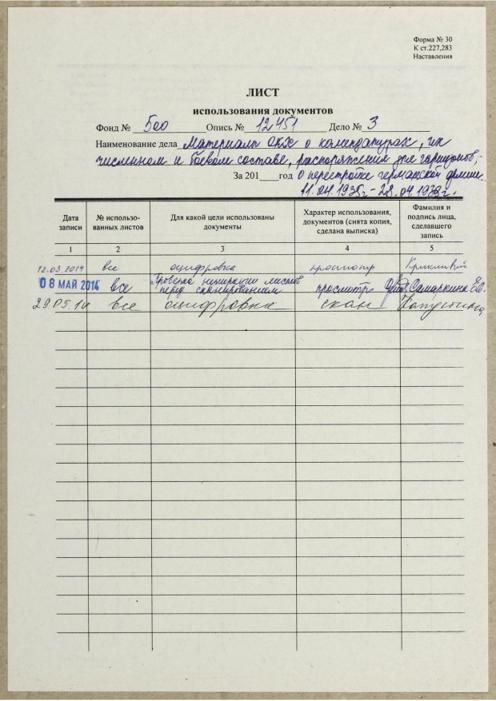 Форма № 30
К ст.227,283
Наставления
ЛИСТ
использования документов
Фонд № 500 Опись № 12451 Дело № 3
Наименование дела Материалы ОКХ о комендатурах, их
численном и боевом составе, распоряжения для гарнизонов,
За 201 год о перестройке германской армии.
11.04.1935г.-28.04.1938г.
Дата записи № использо-ванных листов Для какой цели использованы документы Характер использования, документов (снята копия, сделана выписка) Фамилия и подпись лица, сделавшего запись
1 2 3 4 5
12.03.2014 все оцифровка просмотр
08 МАЙ 2014 все Проверка нумерации листов перед сканированием просмотр Самаркина Е.Ю.
29.05.14 все оцифровка скан